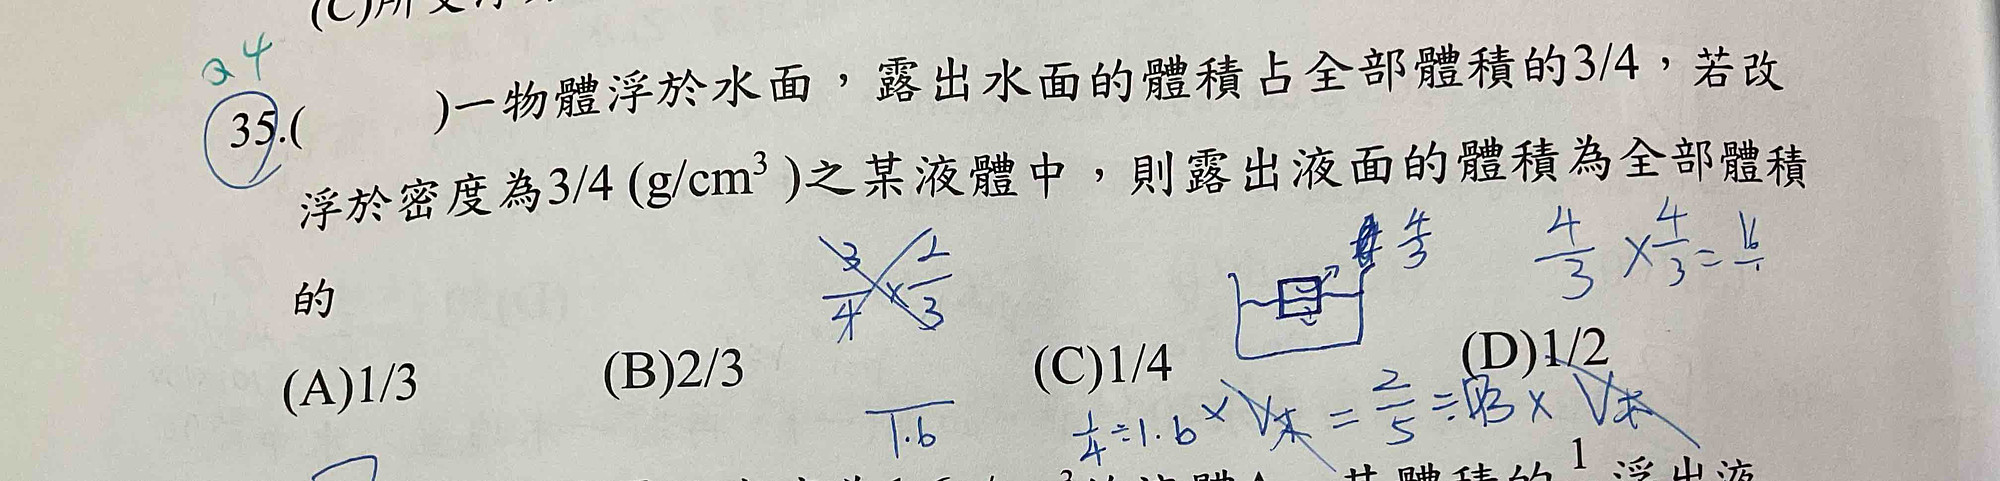 (C)所受浮
35.(      )一物體浮於水面，露出水面的體積占全部體積的3/4，若改
浮於密度為3/4 (g/cm³ )之某液體中，則露出液面的體積為全部體積
的
3/4 × 2/3
4/3
4/3 × 4/3 =
(A)1/3 (B)2/3 (C)1/4 (D)1/2
1.6
1/4 ÷ 1.6 × V木 = 2/5 ÷ × V木